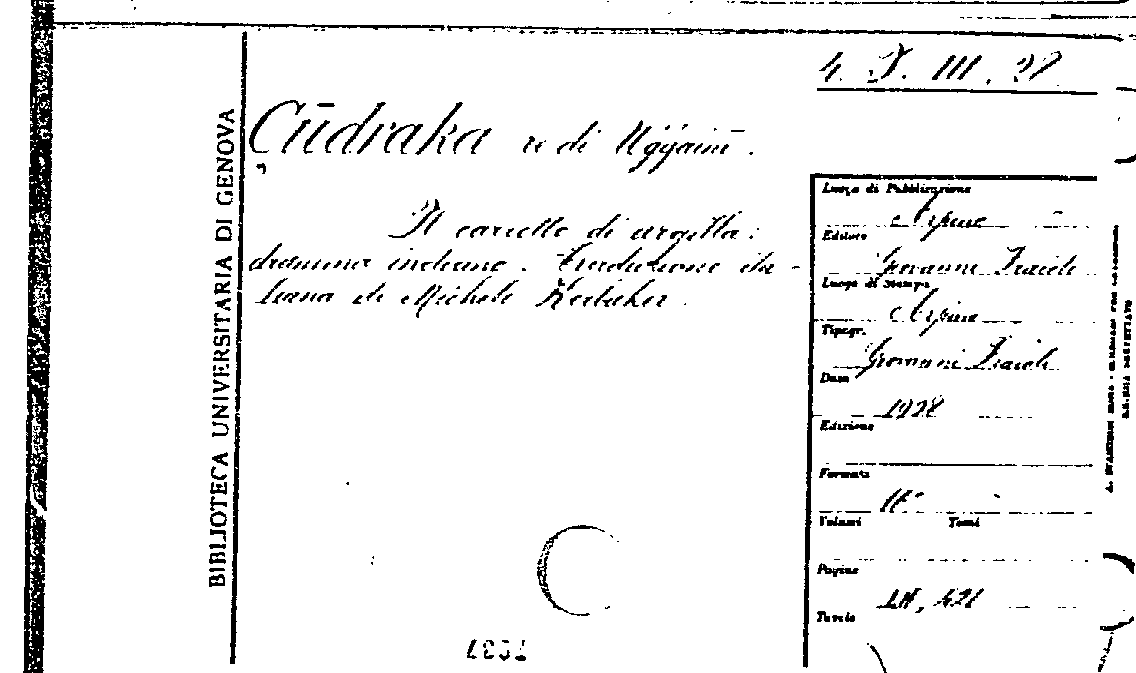 BIBLIOTECA UNIVERSITARIA DI GENOVA
4. J. III. 28
Çūdraka re di Uģģaini.
Il carretto di argilla:
dramma indiano. Traduzione ita-
liana di Michele Kerbaker.
Luogo di Pubblicazione
Arpino
Editore
Giovanni Fraioli
Luogo di Stampa
Arpino
Tipogr.
Giovanni Fraioli
Data
1928
Edizione
Formato
16°
Volumi Tomi
Pagine
Tavole